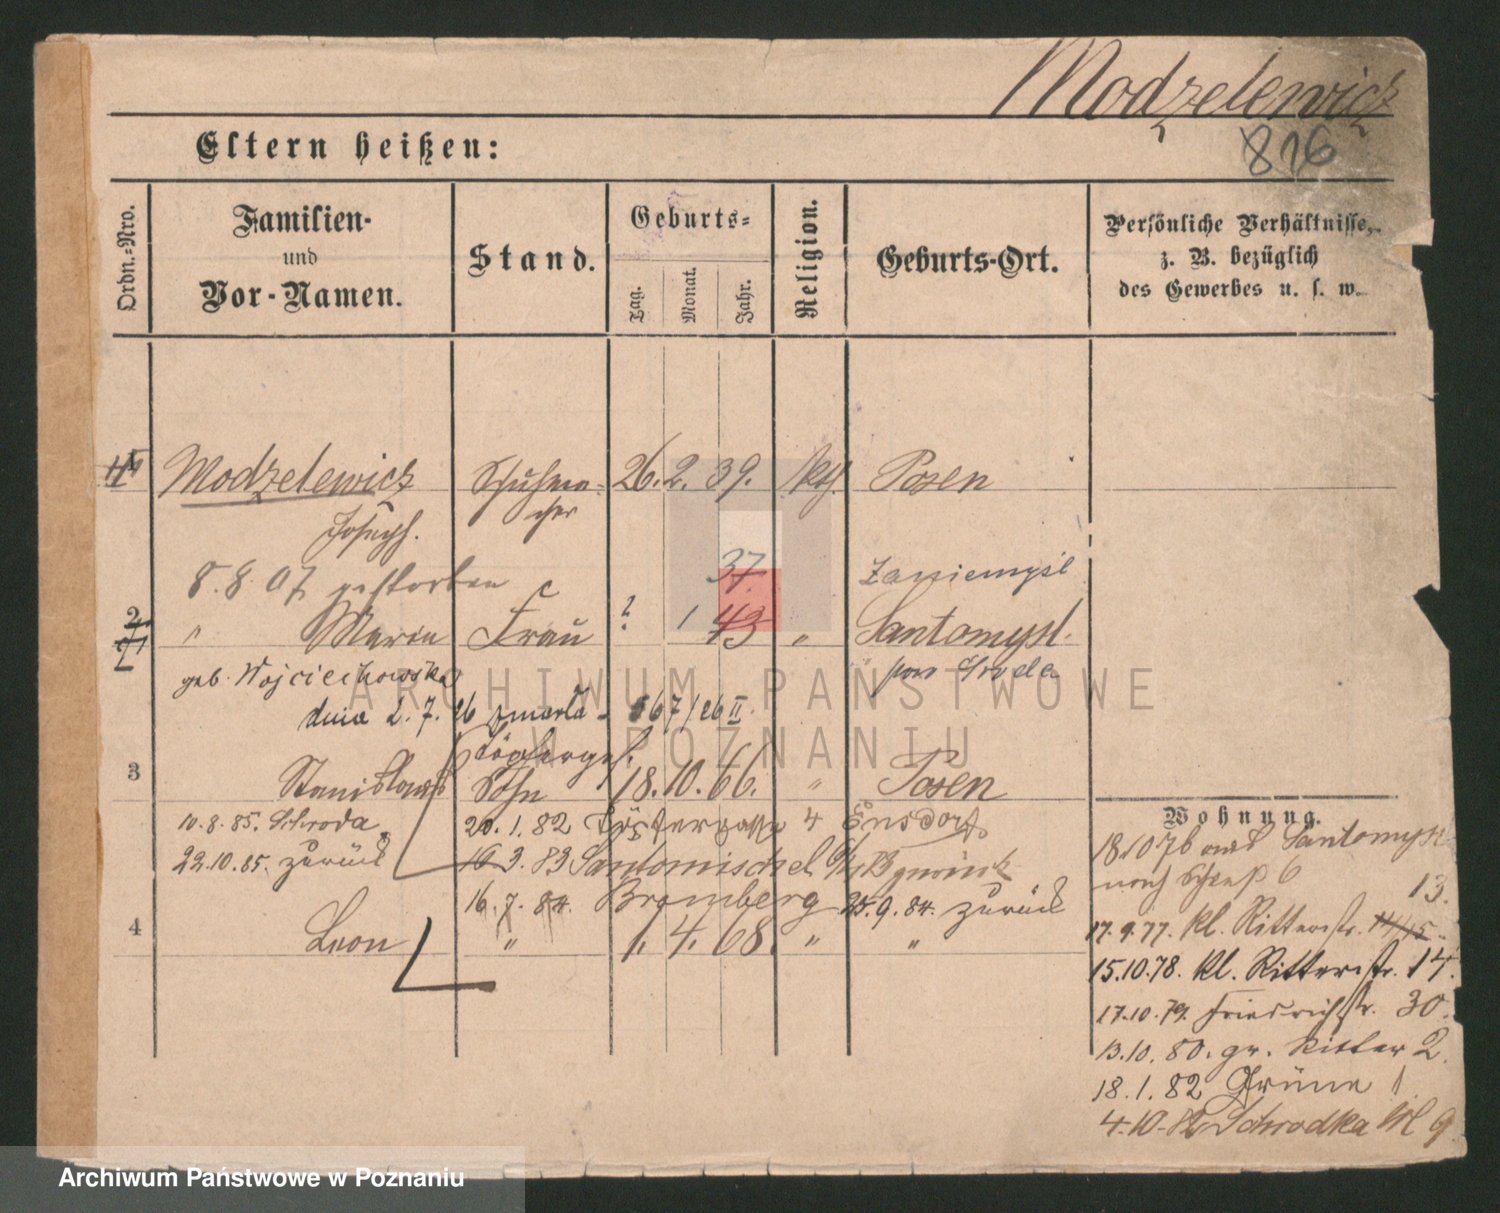 Modzelewicz
816
Eltern heißen:
Ordn.-Nro.
Familien-
und
Vor-Namen.
Stand.
Geburts-
Tag.
Monat.
Jahr.
Religion.
Geburts-Ort.
Persönliche Verhältnisse,
z. B. bezüglich
des Gewerbes u. s. w.
1 Modzelewicz Schuhma- 26. 2. 39. kth. Posen
Joseph. cher
8. 8. 07 gestorben 37. Zaniemyśl
2 " Maria Frau ? 1 43 " Santomysl.
geb. Wojciechowska Kr. Sroda
dnia 2. 7. 26 zmarła - 667/26 II.
Töpferges.
3 Stanislaus Sohn 18. 10. 66. " Posen
10. 8. 85. Schroda 20. 1. 82 4
22. 10. 85. zurück 16 3. 83 Santomischel zurück
16. 7. 84. Bromberg 25. 9. 84. zurück
4 Leon " 1. 4. 68. " "
Wohnung.
18.10 76 aus Santomysl
nach 6 13.
17. 9. 77. kl. Ritterstr. 14/15.
15.10.78. kl. Ritterstr. 14.
17.10.79. Friedrichstr. 30.
13.10. 80. gr. Ritter 2.
18. 1. 82 Grüne 1
4. 10. 82 Schrodka 9
ARCHIWUM PAŃSTWOWE
W POZNANIU
Archiwum Państwowe w Poznaniu